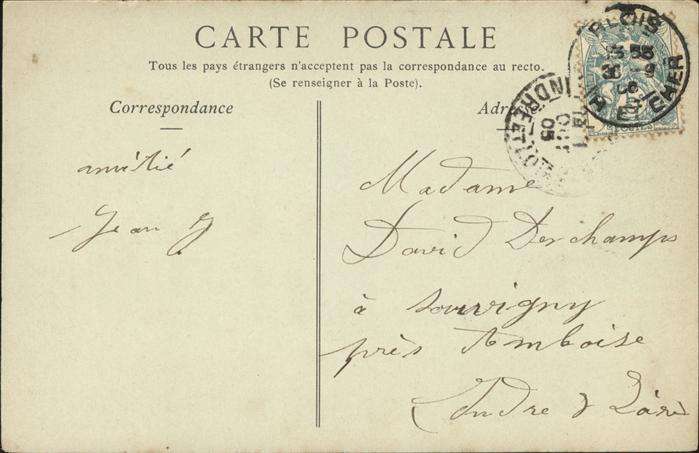 CARTE POSTALE
Tous les pays étrangers n'acceptent pas la correspondance au recto.
(Se renseigner à la Poste).
Correspondance
Adresse
amitié
Jean J
Madame
David Deschamps
à Souvigny
près Amboise
Indre & Loire
BLOIS
LOIR ET CHER
INDRE ET LOIRE
05